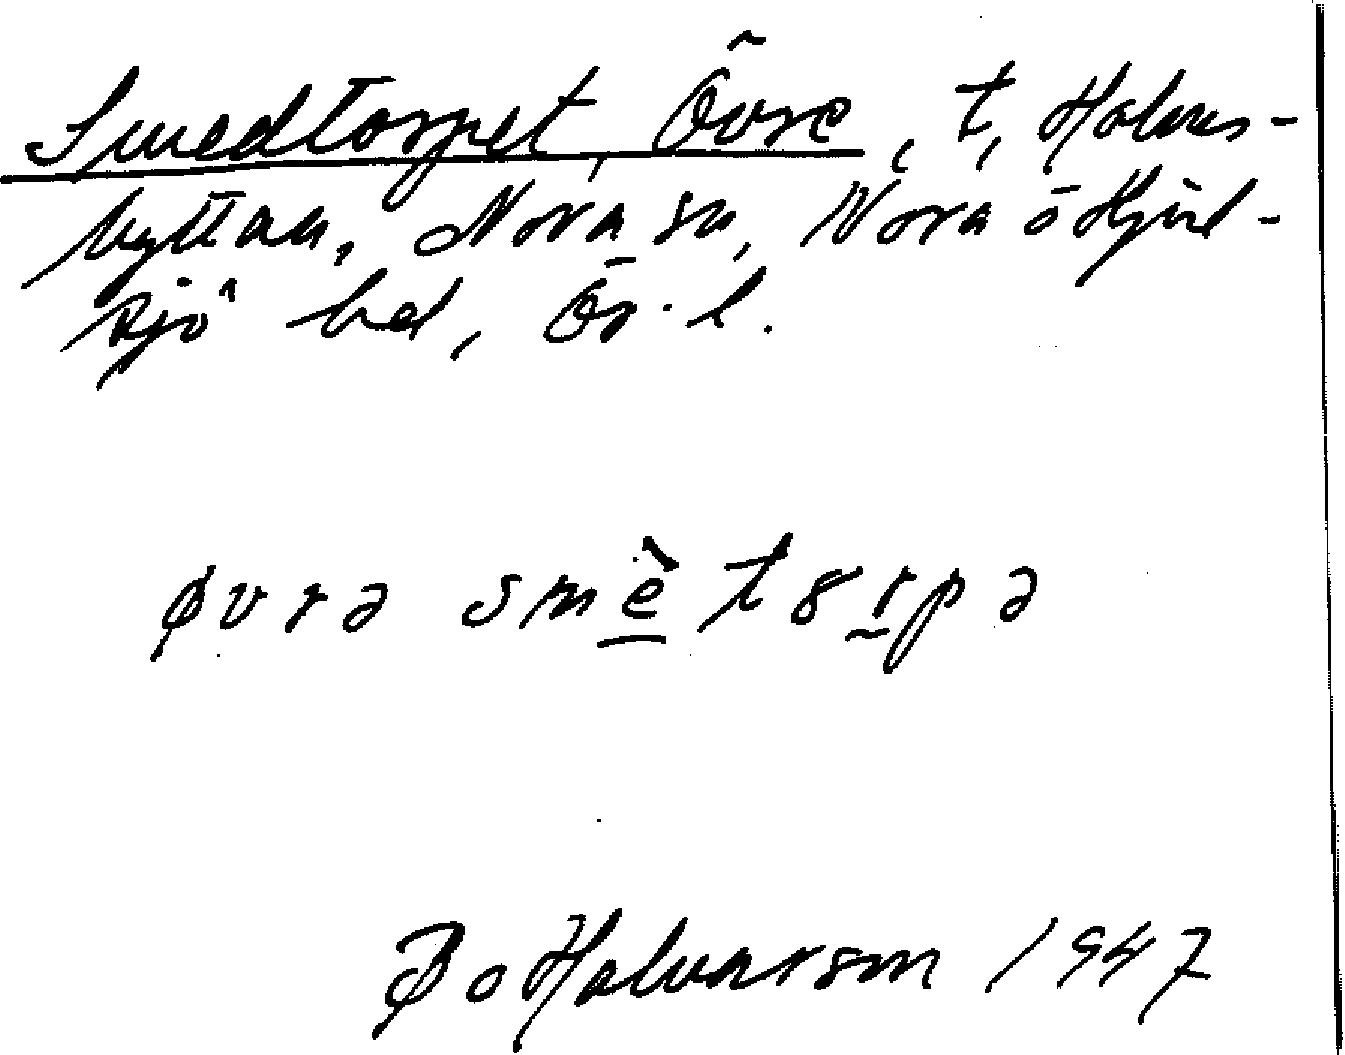 Smedtorpet, Övre, t, Holms-
hyttan, Nora sn, Nora o Hjul-
sjö bd, Ör. l.
øvrə smètȣrpə
Bo Halvarson 1947